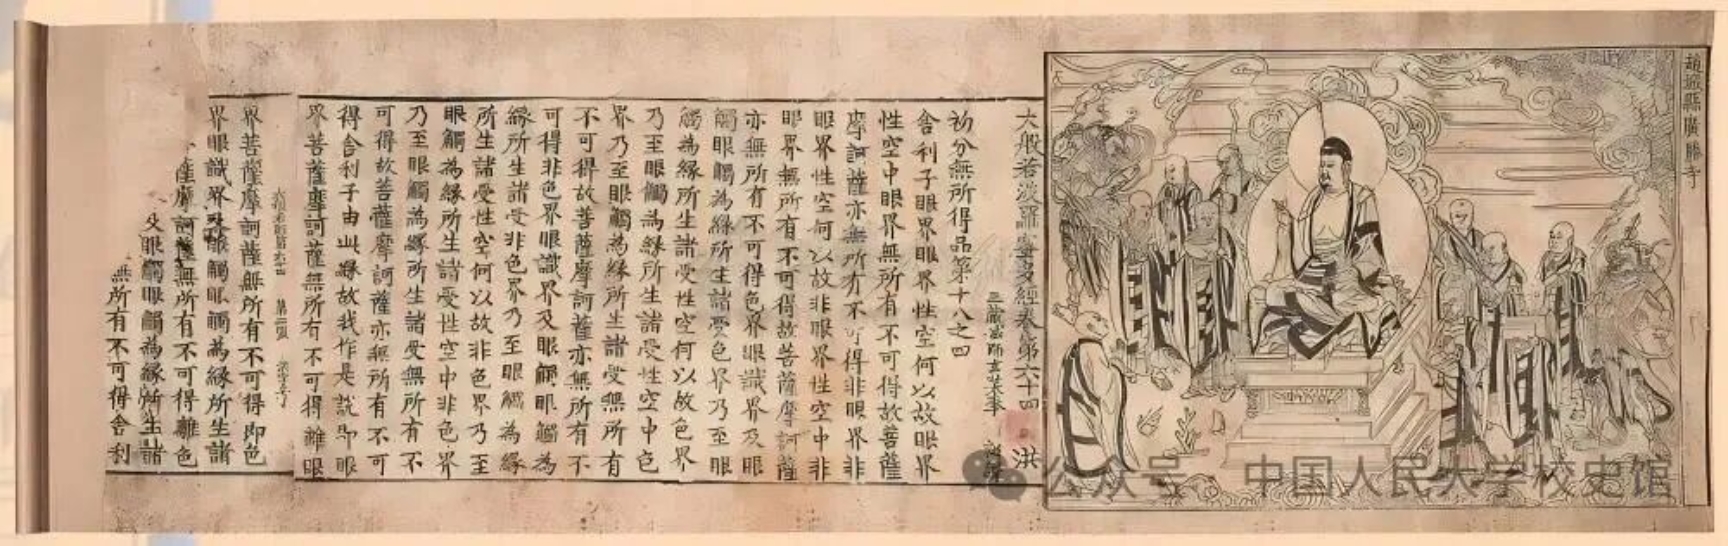 趙城縣廣勝寺
大般若波羅蜜多經卷第六十四 洪
三藏法師玄奘奉 詔譯
初分無所得品第十八之四
舍利子眼界眼界性空何以故眼界
性空中眼界無所有不可得故菩薩
摩訶薩亦無所有不可得非眼界非
眼界性空何以故非眼界性空中非
眼界無所有不可得故菩薩摩訶薩
亦無所有不可得色界眼識界及眼
觸眼觸為緣所生諸受色界乃至眼
觸為緣所生諸受性空何以故色界
乃至眼觸為緣所生諸受性空中色
界乃至眼觸為緣所生諸受無所有
不可得故菩薩摩訶薩亦無所有不
可得非色界眼識界及眼觸眼觸為
緣所生諸受非色界乃至眼觸為緣
所生諸受性空何以故非色界乃至
眼觸為緣所生諸受性空中非色界
乃至眼觸為緣所生諸受無所有不
可得故菩薩摩訶薩亦無所有不可
得舍利子由此緣故我作是說即眼
界菩薩摩訶薩無所有不可得離眼
界菩薩摩訶薩無所有不可得即色
界眼識界及眼觸眼觸為緣所生諸
薩摩訶薩無所有不可得離色
及眼觸眼觸為緣所生諸
無所有不可得舍利
公众号 中国人民大学校史馆